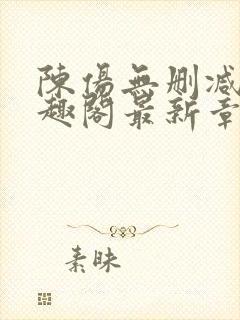 陳傷無刪减
趣閣最新章
素昧